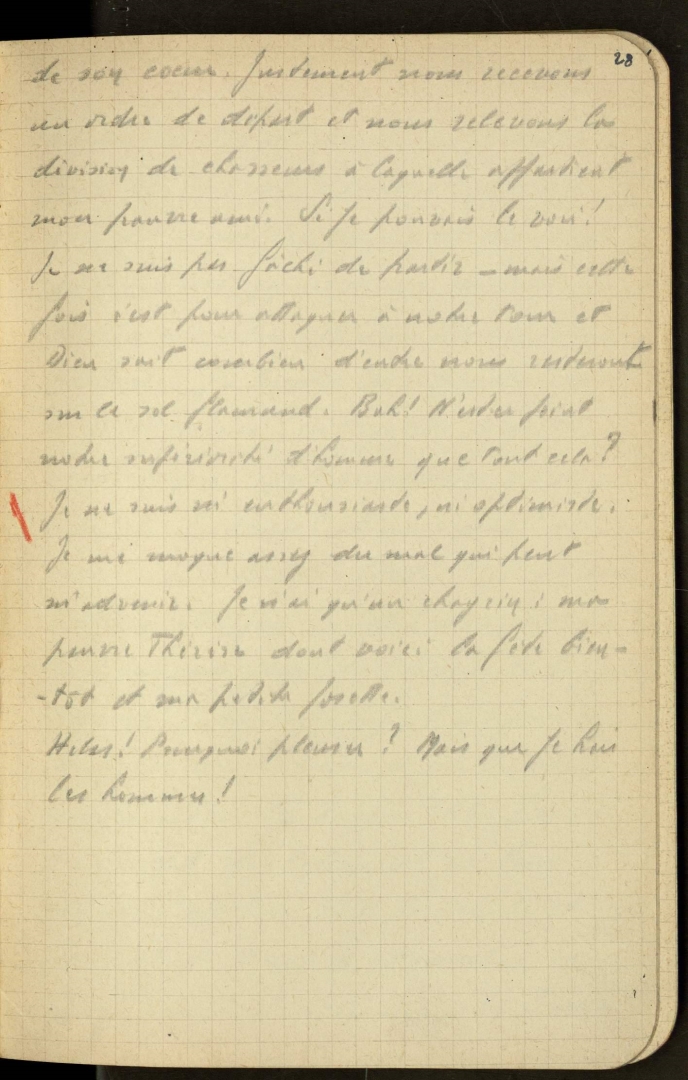 28
de son coeur. Justement nous recevons
un ordre de départ et nous relevons la
division de chasseurs à laquelle appartient
mon pauvre ami. Si je pouvais le voir !
Je ne suis pas fâché de partir – mais cette
fois c'est pour attaquer à notre tour et
Dieu sait combien d'entre nous resteront
sur le sol flamand. Bah ! N'est-ce point
notre infériorité d'homme que tout cela ?
Je ne suis ni enthousiaste, ni optimiste.
Je me moque assez du mal qui peut
m'advenir. Je n'ai qu'un chagrin : ma
pauvre Thérèse dont voici la fête bien-
-tôt et ma petite Josette.
Hélas ! Pourquoi pleurer ? Mais que je hais
les hommes !